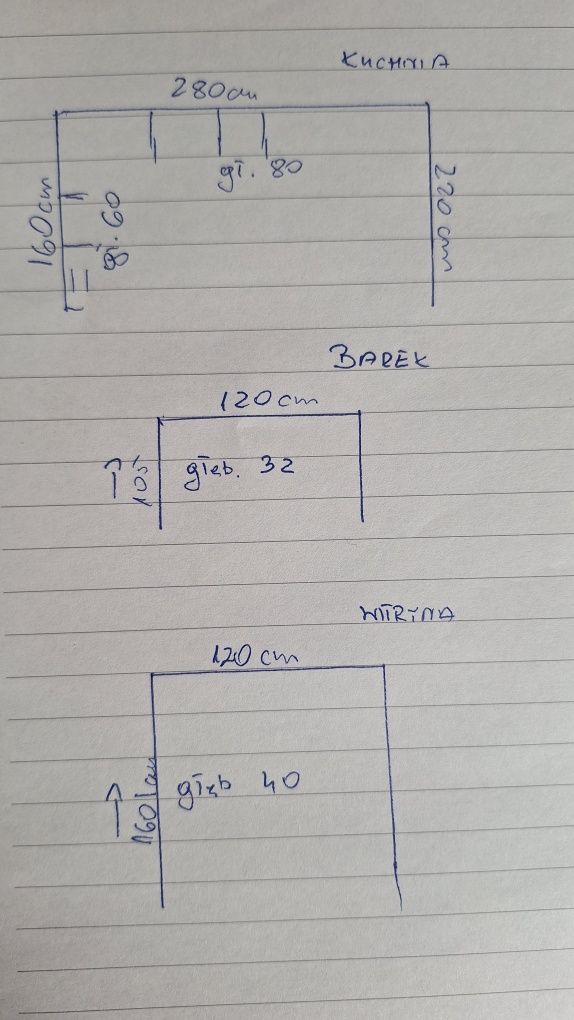 KUCHNIA
280cm
gł. 80
160cm
gł. 60
220 cm
BAREK
120cm
105
głęb. 32
WITRYNA
120 cm
160
głęb 40